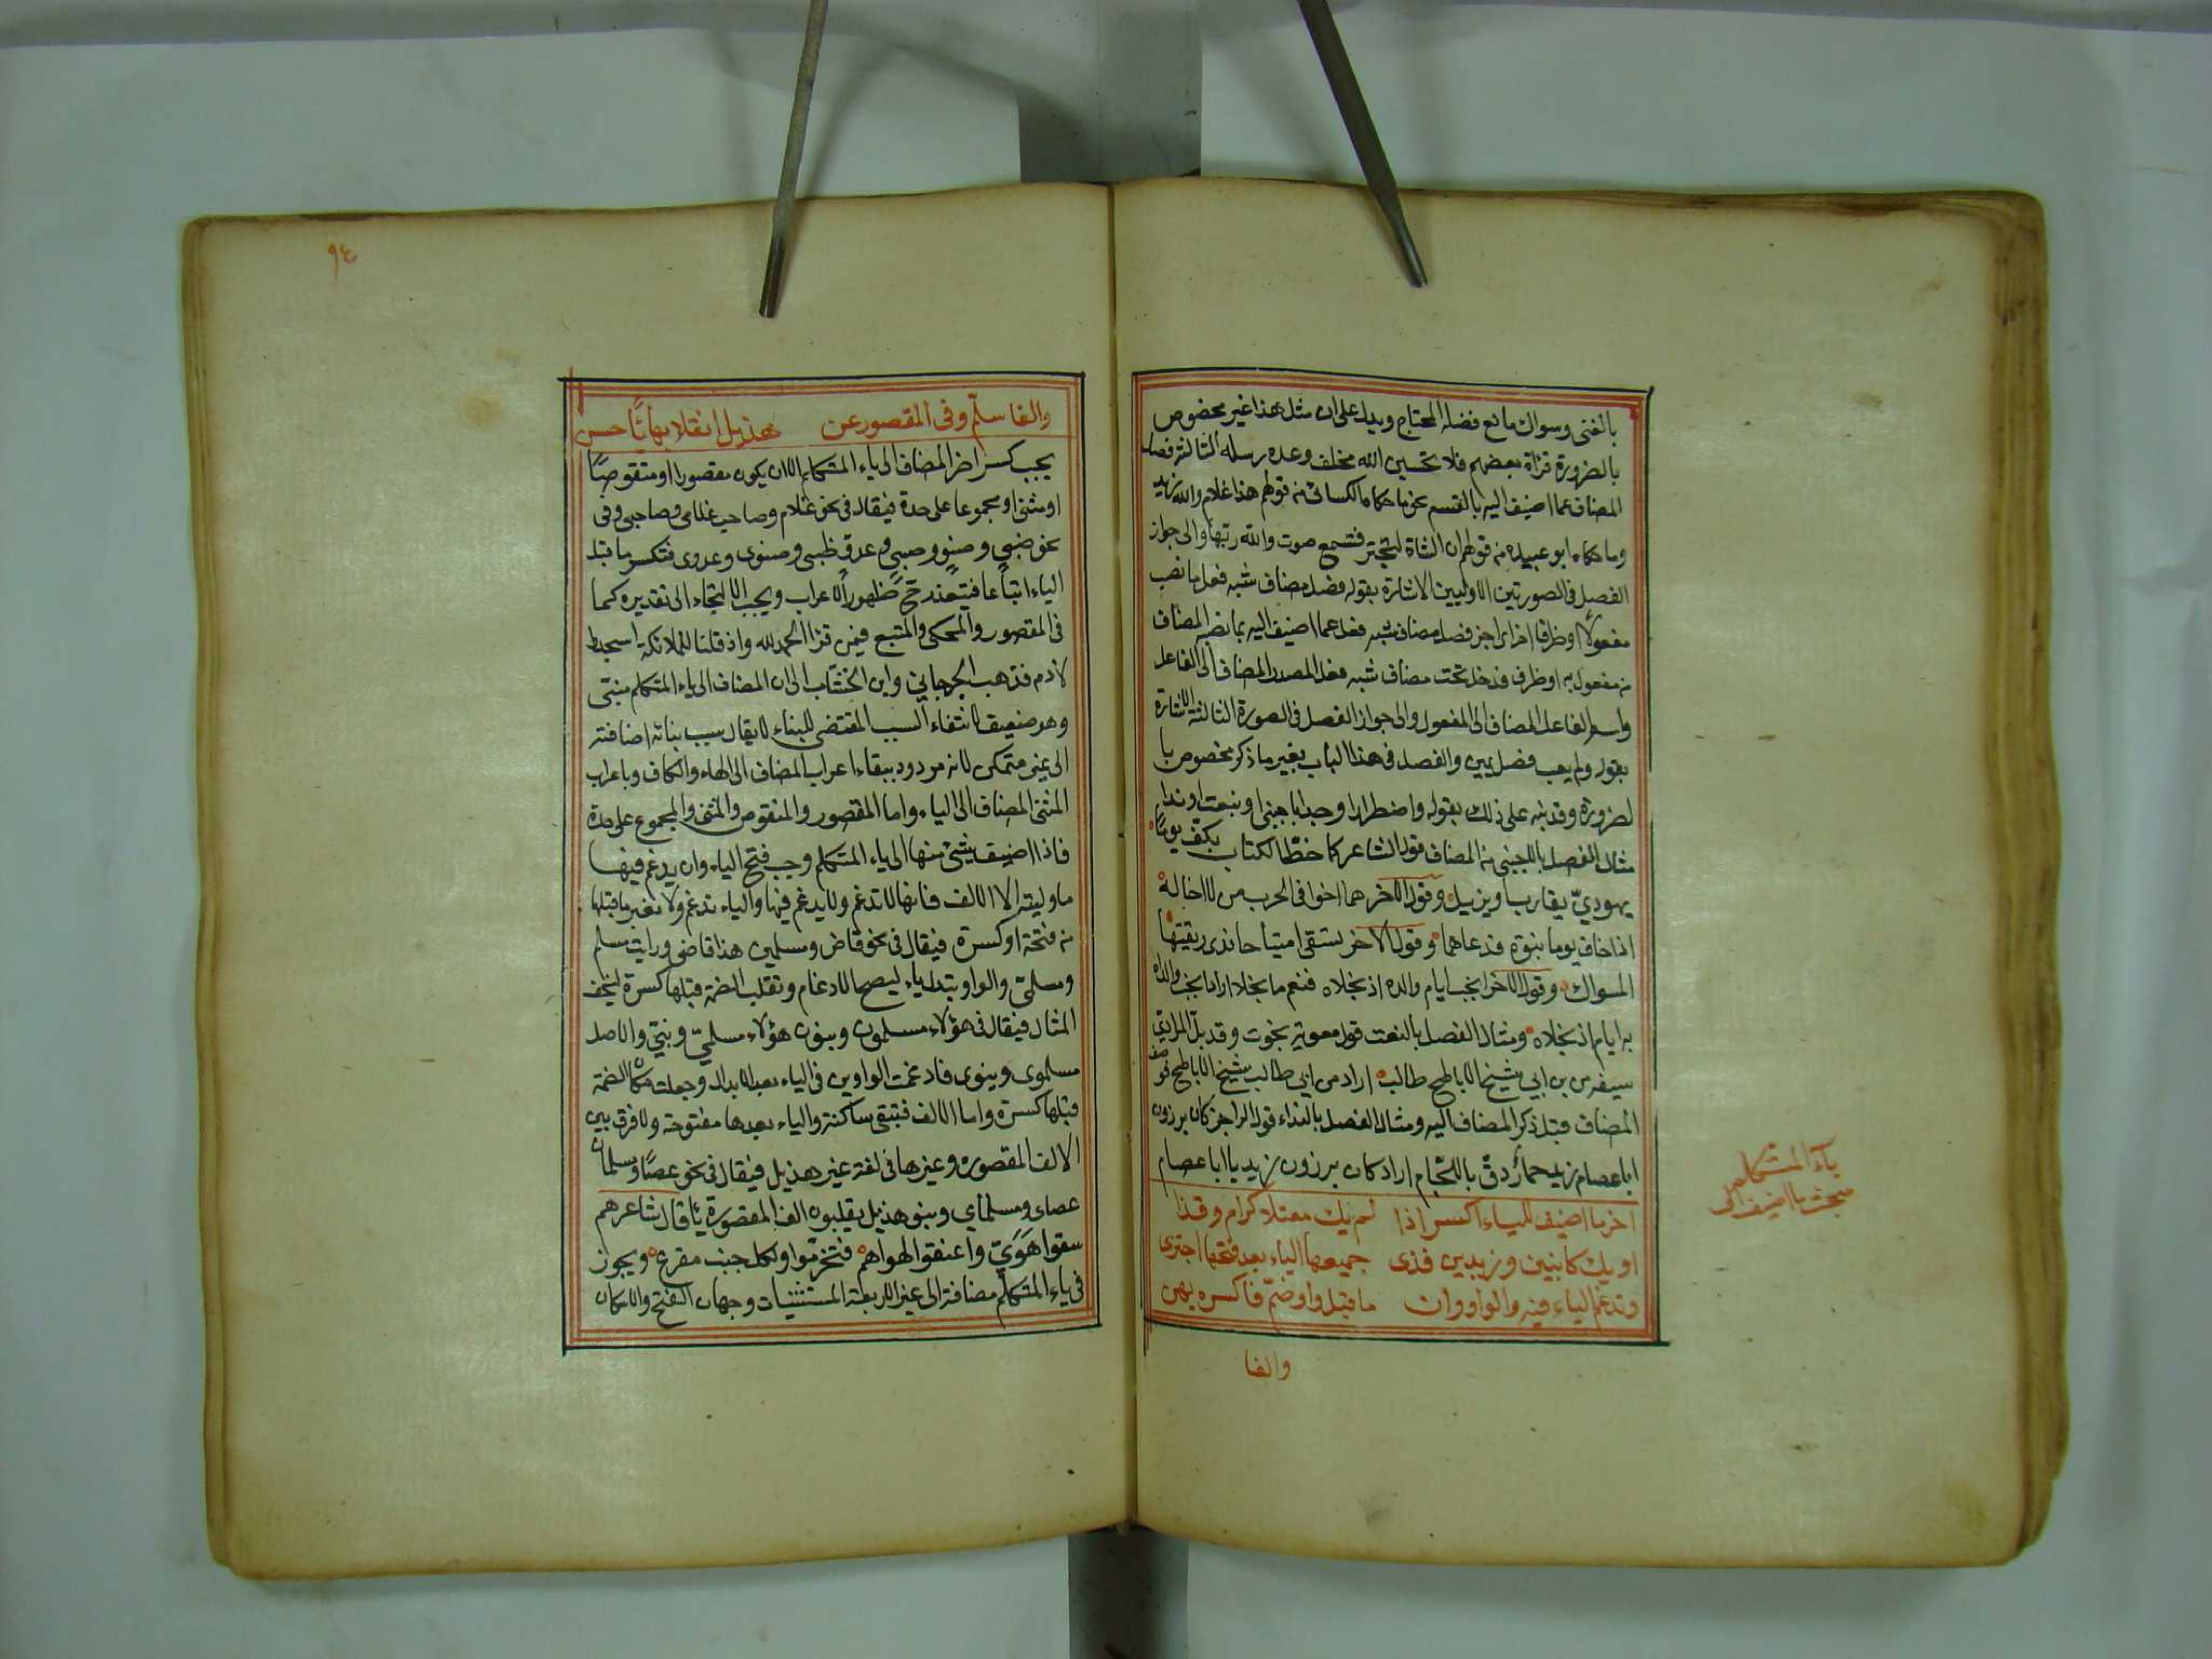 بالغنى وسواك مانع فضله المحتاج ويدل على ان مثل هذا غير مخصوص
بالضرورة قراة بعضهم فلا تحسبن الله مخلف وعده رسله الثالثة فصل
المضاف عما اضيف اليه بالقسم نحو ما حكاه الكسائي من قولهم هذا غلام والله زيد
وما حكاه ابو عبيدة من قولهم ان الشاة لتجتر فتسمع صوت والله ربها والى جواز
الفصل فى الصورتين الاوليين الاشارة بقوله فصل مضاف شبه فعل ما نصب
مفعولا او ظرفا اجز اي اجز فصل مضاف شبه فعل عما اضيف اليه بما نصبه المضاف
من مفعول به او ظرف فدخل تحت مضاف شبه فعل المصدر المضاف الى الفاعل
واسم الفاعل المضاف الى المفعول والى جواز الفصل فى الصورة الثالثة الاشارة
بقوله ولم يعب فصل يمين والفصل فى هذا الباب بغير ما ذكر مخصوص با
لضرورة وقد نبه على ذلك بقوله واضطرارا وجدا باجنبي او بنعت او ندا
مثال الفصل بالاجنبي من المضاف قول الشاعر كما خط الكتاب بكف يوما
يهودي يقارب او يزيل وقول الاخر هما اخوا فى الحرب من لا اخا له
اذا خاف يوما نبوة فدعاهما وقول الاخر تسقى امتياحا ندى ريقتها
المسواك وقول الاخر انجب ايام والده اذ نجلاه فنعم ما نجلا اراد انجب والداه
به ايام اذ نجلاه ومثال الفصل بالنعت قول معوية نجوت وقد بل المرادي
سيفه من بن ابي شيخ الاباطح طالب اراد من ابي طالب شيخ الاباطح فوصف
المضاف قبل ذكر المضاف اليه ومثال الفصل بالنداء قول الراجز كان برذون
ابا عصام زيد حمار دق باللجام اراد كان برذون زيد يا ابا عصام
اخر ما اضيف للياء اكسر اذا لم يك معتلا كرام وقذا
او يك كابنين وزيدين فذى جميعها الياء بعد فتحها احتذى
وتدغم الياء فيه والواو وان ما قبل واو ضم فاكسره يهن
والفا
ياء المتكلم
مبحث ما اضيف الى
٩٤
والفا سلم وفى المقصور عن هذيل انقلابها يا حسن
يجب كسر اخر المضاف الى ياء المتكلم الا ان يكون مقصورا او منقوصا
او مثنى او مجموعا على حدة فيقال فى نحو غلام وصاحب غلامى وصاحبى وفى
نحو ظبي وصنو وصبي وعدو ظبيى وصنوى وعدوى فتكسر ما قبل
الياء اتباعا فيتعذر ح ظهور الاعراب ويجب الالتجاء الى تقديره كما
فى المقصور والمحكى والمتبع فيمن قرا الحمد لله واذ قلنا للملائكة اسجدوا
لادم فذهب الجرجاني وابن الخشاب الى ان المضاف الى ياء المتكلم مبني
وهو ضعيف لانتفاء السبب المقتضى للبناء لا يقال سبب بنائه اضافته
الى غير متمكن لانه مردود ببقاء اعراب المضاف الى الهاء والكاف وباعراب
المثنى المضاف الى الياء واما المقصور والمنقوص والمثنى والمجموع على حدة
فاذا اضيف شئ منها الى ياء المتكلم وجب فتح الياء وان يدغم فيها
ما وليته الا الالف فانها لا تدغم ولا يدغم فيها والياء تدغم ولا تغير ما قبلها
من فتحة او كسرة فيقال فى نحو قاض ومسلمين هذا قاضي ورايت مسلم
ومسلمي والواو تبدل ياء ليصح الادغام وتقلب الضمة قبلها كسرة ليخف
المثال فيقال فى هؤلاء مسلمون وبنون هؤلاء مسلمي وبني والاصل
مسلموى وبنوى فادغمت الواوين فى الياء بعد الابدال وجعلت مكان الضمة
قبلها كسرة واما الالف فتبقى ساكنة والياء بعدها مفتوحة ولا فرق بين
الالف المقصوره وغيرها فى لغة غير هذيل فيقال فى نحو عصا ومسلمان
عصاى ومسلماي وبنو هذيل يقلبون الف المقصورة يا قال شاعرهم
سقوا هوي واعنقوا لهواهم فتخرموا ولكل جنب مصرع ويجوز
فى ياء المتكلم مضافة الى غير الاربعة المستثنيات وجهان الفتح والاسكان